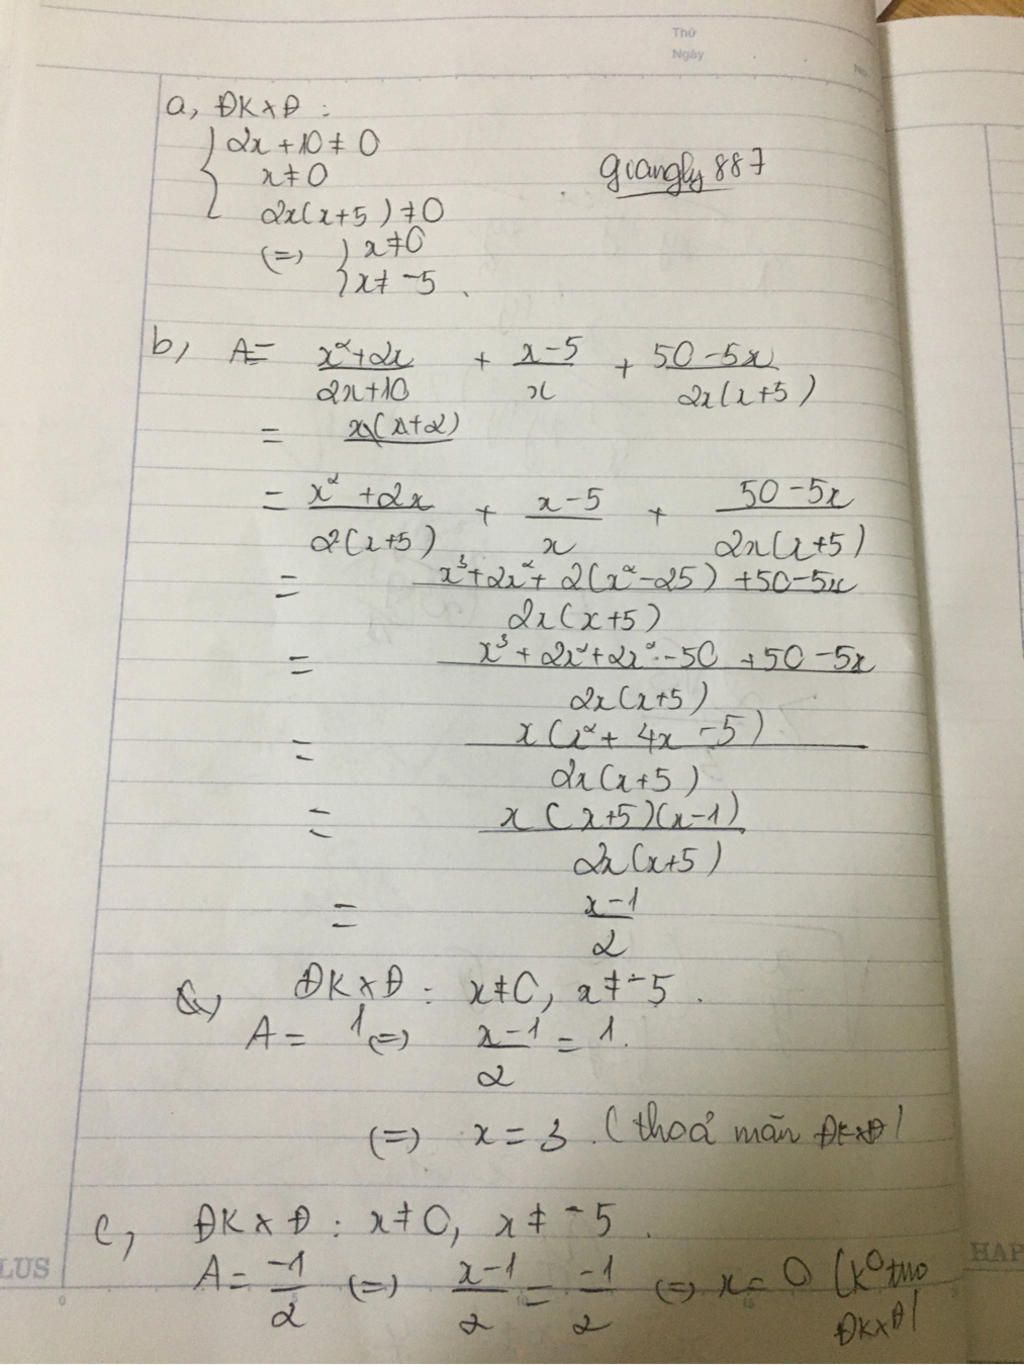 Thứ
Ngày
No.
a, ĐKXĐ :
2x + 10 ≠ 0
x ≠ 0
giangly 887
2x(x+5) ≠ 0
(=) x ≠ 0
x ≠ -5 .
b, A = (x²+2x)/(2x+10) + (x-5)/x + (50-5x)/(2x(x+5))
= x(x+2)
= (x²+2x)/(2(x+5)) + (x-5)/x + (50-5x)/(2x(x+5))
= (x³+2x²+2(x²-25)+50-5x)/(2x(x+5))
= (x³+2x²+2x²-50+50-5x)/(2x(x+5))
= x(x²+4x-5)/(2x(x+5))
= x(x+5)(x-1)/(2x(x+5))
= (x-1)/2
ĐKXĐ : x ≠ 0, x ≠ -5 .
A = 1 (=) (x-1)/2 = 1.
(=) x = 3 . (thoả mãn ĐKXĐ)
c, ĐKXĐ : x ≠ 0, x ≠ -5 .
A = -1/2 (=) (x-1)/2 = -1/2 (=) x = 0 (k⁰ tmo
ĐKXĐ)
LUS
HAP
0 5 10 15